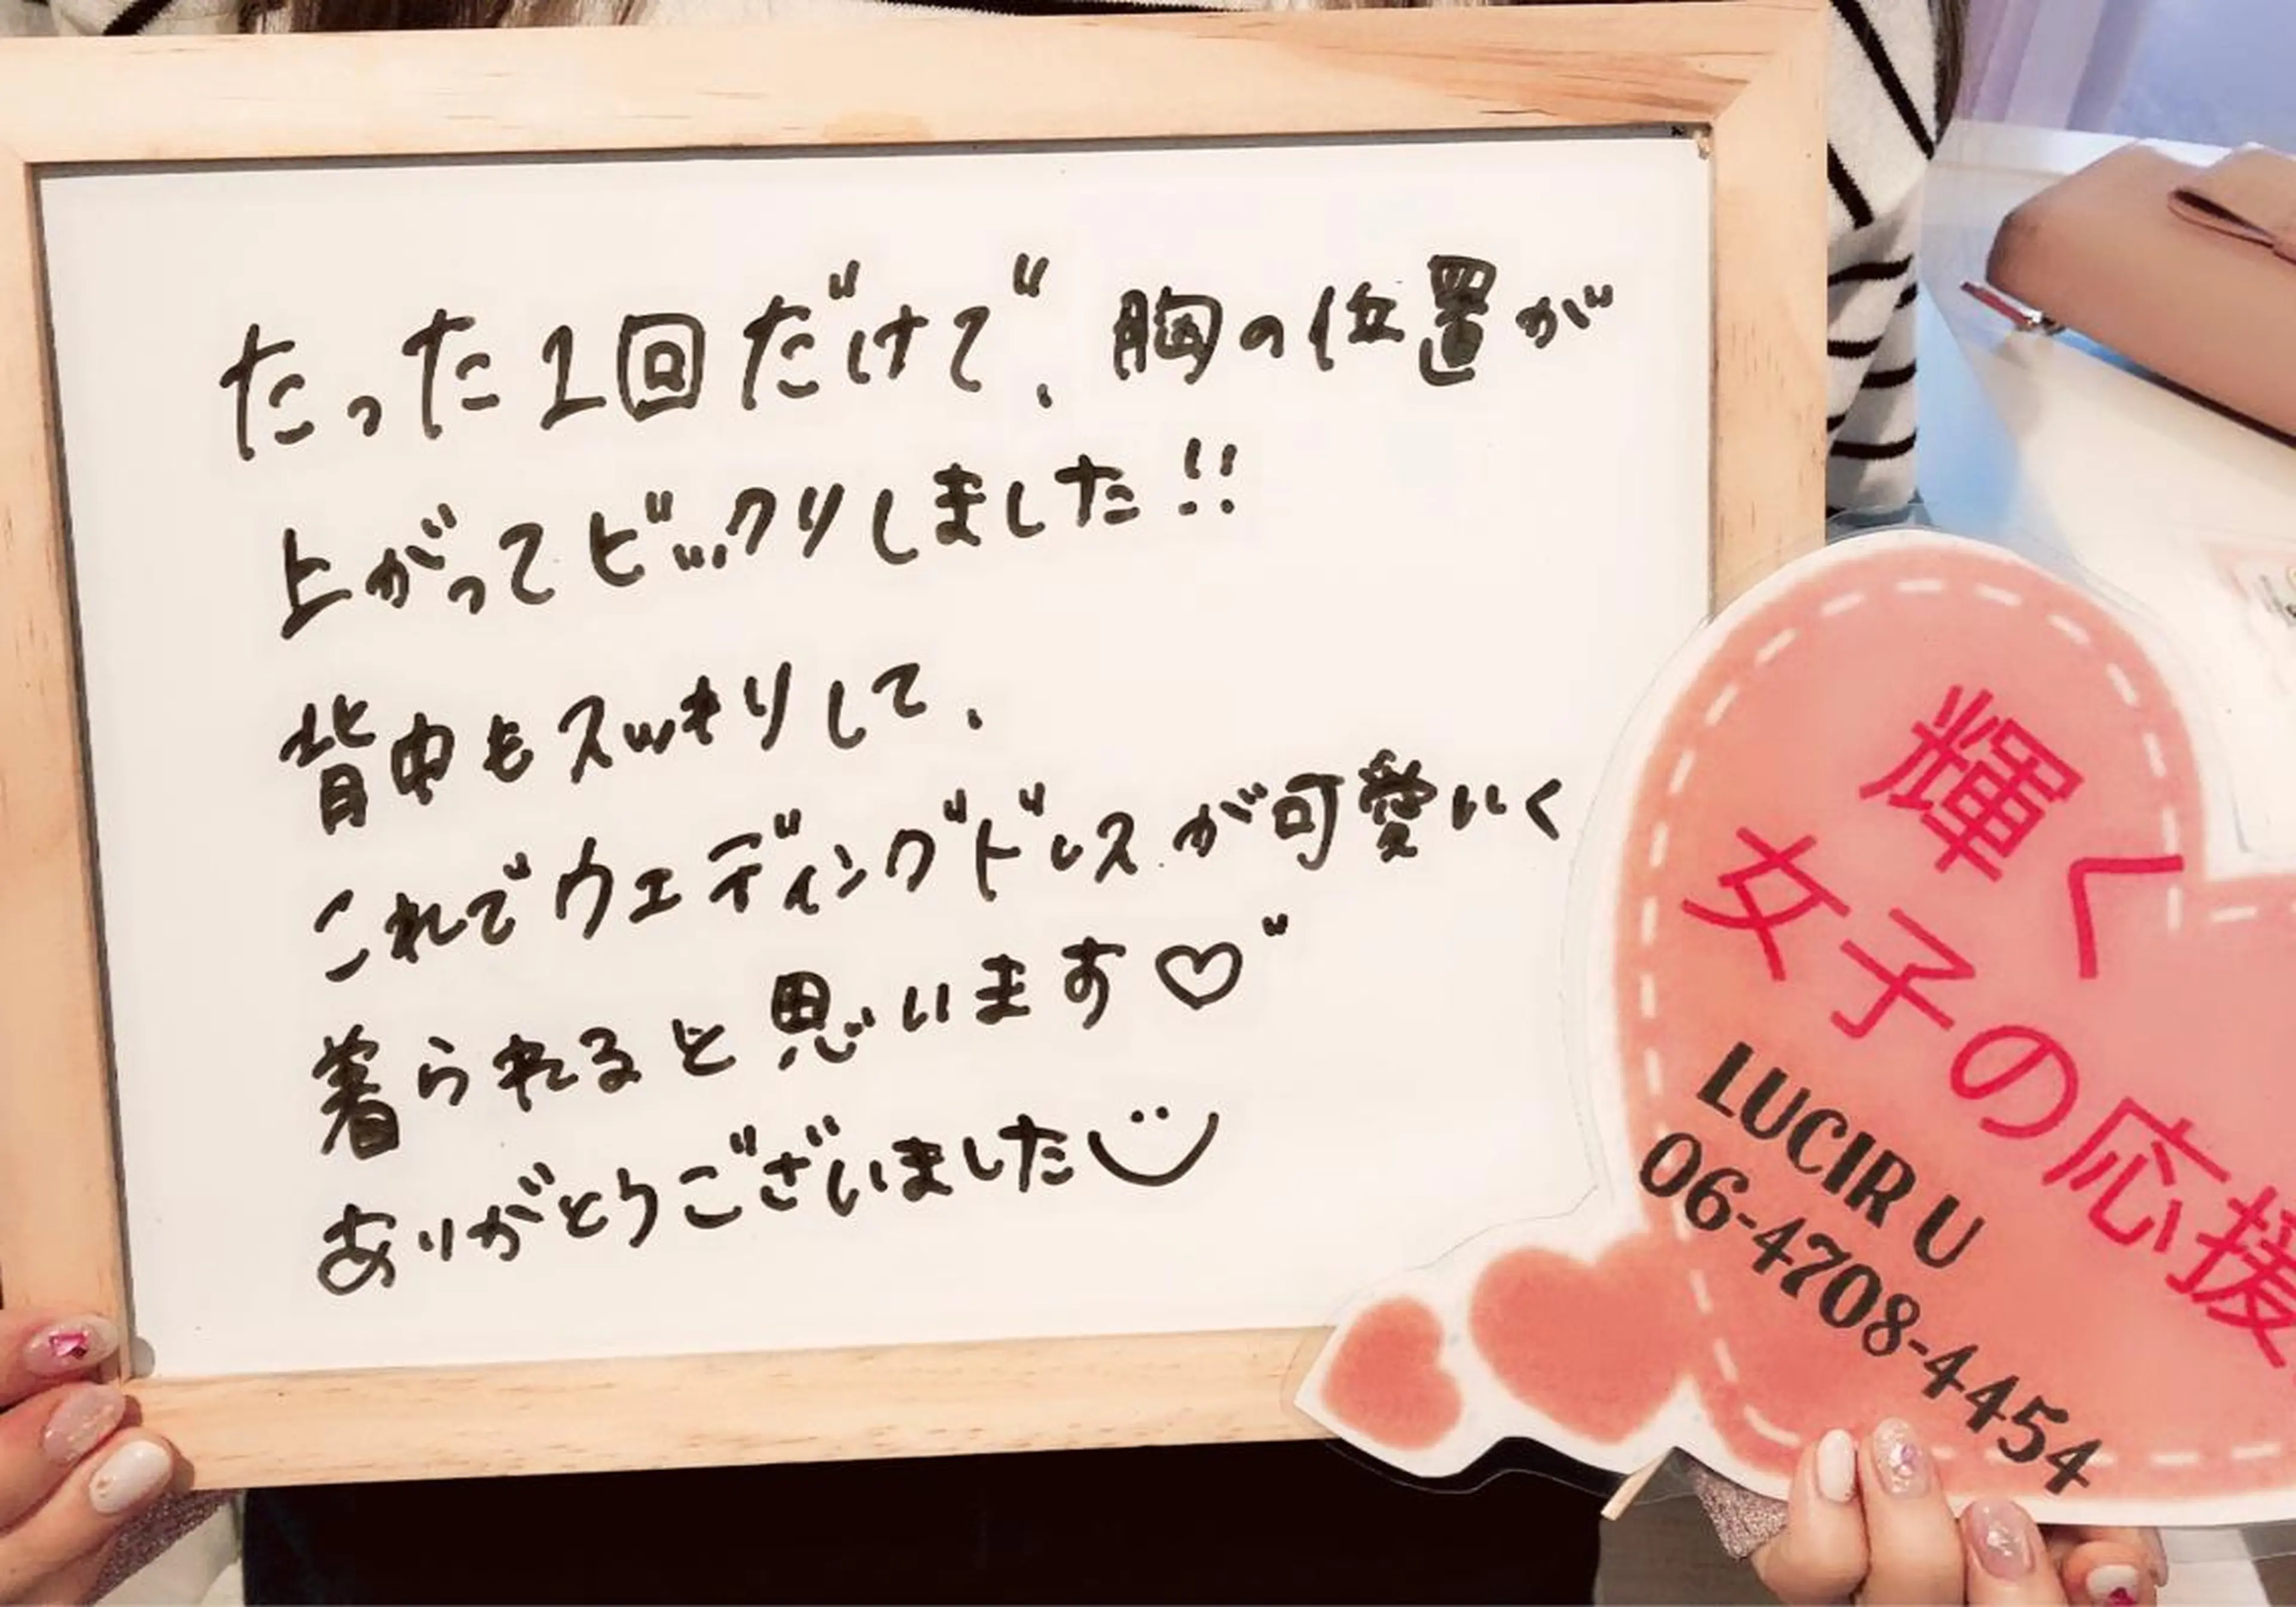 たった1回だけで、胸の位置が
上がってビックリしました!!
背中もスッキリして、
これでウエディングドレスが可愛いく
着られると思います♡"
ありがとうございました
輝く
女子の応援
LUCIR U
06-4708-4454